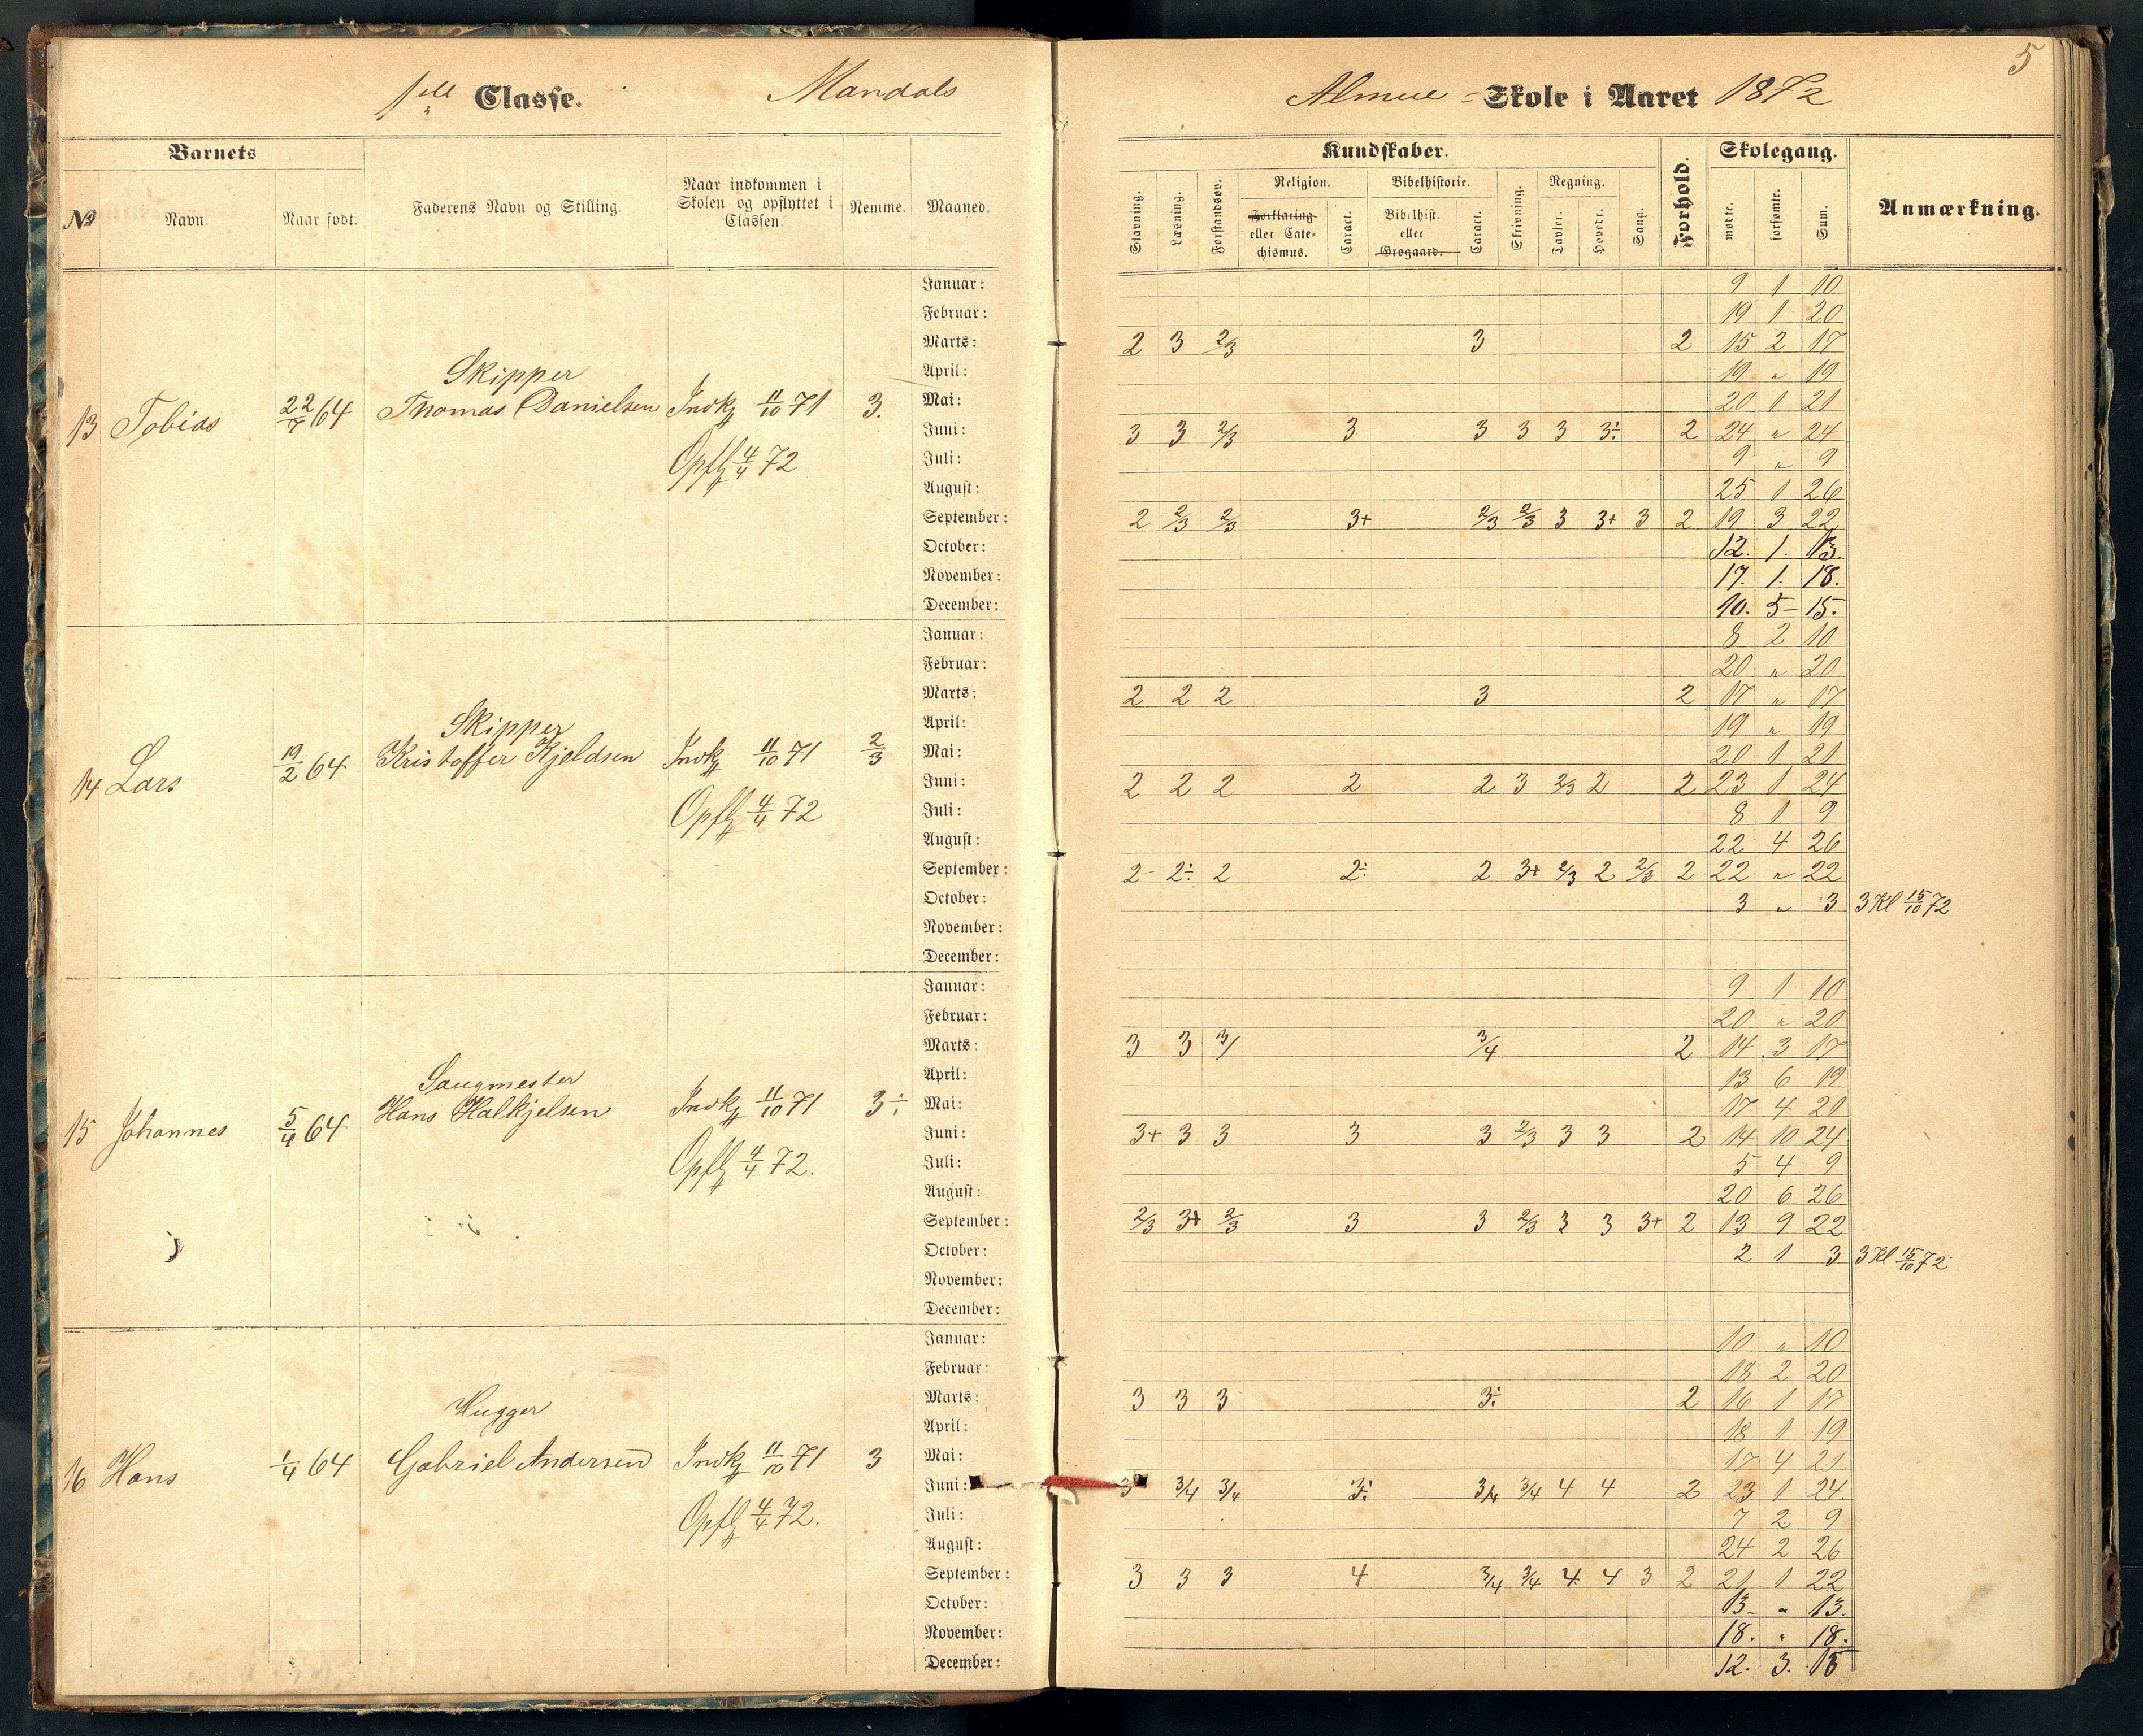 5
1ste Classe. Mandals Almue-Skole i Aaret 1872
Barnets Kundskaber. Skolegang.
Religion. Bibelhistorie. Regning.
No Navn. Naar født. Faderens Navn og Stilling. Naar indkommen i Skolen og opflyttet i Classen. Nemme. Maaned. Stavning. Læsning. Forstandsøv. Forklaring eller Catechismus. Caract. Bibelhist. eller Grøgaard. Caract. Skrivning. Tavler. Hovedr. Sang. Forhold. mødte. forsømte. Sum. Anmærkning.
Januar: 9 1 10
Februar: 19 1 20
Marts: 2 3 2/3 3 2 15 2 17
Skipper
April: 19 " 19
13 Tobias 22/7 64 Thomas Danielsen Indk 11/10 71 3. Mai: 20 1 21
Juni: 3 3 2/3 3 3 3 3 3÷ 2 24 " 24
Opfl 4/4 72 Juli: 9 " 9
August: 25 1 26
September: 2 2/3 2/3 3+ 2/3 2/3 3 3+ 3 2 19 3 22
October: 12. 1. 13.
November: 17. 1. 18.
December: 10. 5- 15.
Januar: 8 2 10
Februar: 20 " 20
Marts: 2 2 2 3 2 17 " 17
Skipper
April: 19 " 19
14 Lars 19/2 64 Kristoffer Kjeldsen Indk 11/10 71 2/3 Mai: 20 1 21
Juni: 2 2 2 2 2 3 2/3 2 2 23 1 24
Opfl 4/4 72 Juli: 8 1 9
August: 22 4 26
September: 2 2÷ 2 2÷ 2 3+ 2/3 2 2/3 2 22 " 22
October: 3 " 3 3 Kl 15/10 72
November:
December:
Januar: 9 1 10
Februar: 20 " 20
Marts: 3 3 3/ 3/4 2 14 3 17
Saugmester
April: 13 6 19
15 Johannes 5/4 64 Hans Halkjelsen Indk 11/10 71 3÷ Mai: 17 4 21
Juni: 3+ 3 3 3 3 2/3 3 3 2 14 10 24
Opfl 4/4 72. Juli: 5 4 9
August: 20 6 26
September: 2/3 3+ 2/3 3 3 2/3 3 3 3+ 2 13 9 22
October: 2 1 3 3 Kl 15/10 72
November:
December:
Januar: 10 " 10
Februar: 18 2 20
Marts: 3 3 3 3÷ 2 16 1 17
Hugger
April: 18 1 19
16 Hans 1/4 64 Gabriel Andersen Indk 11/10 71 3 Mai: 17 4 21
Juni: 3 3/4 3/4 3÷ 3/4 3/4 4 4 2 23 1 24
Opfl 4/4 72. Juli: 7 2 9
August: 24 2 26
September: 3 3 3 4 3/4 3/4 4 4 3 2 21 1 22
October: 13- " 13.
November: 18. " 18.
December: 12. 3. 15